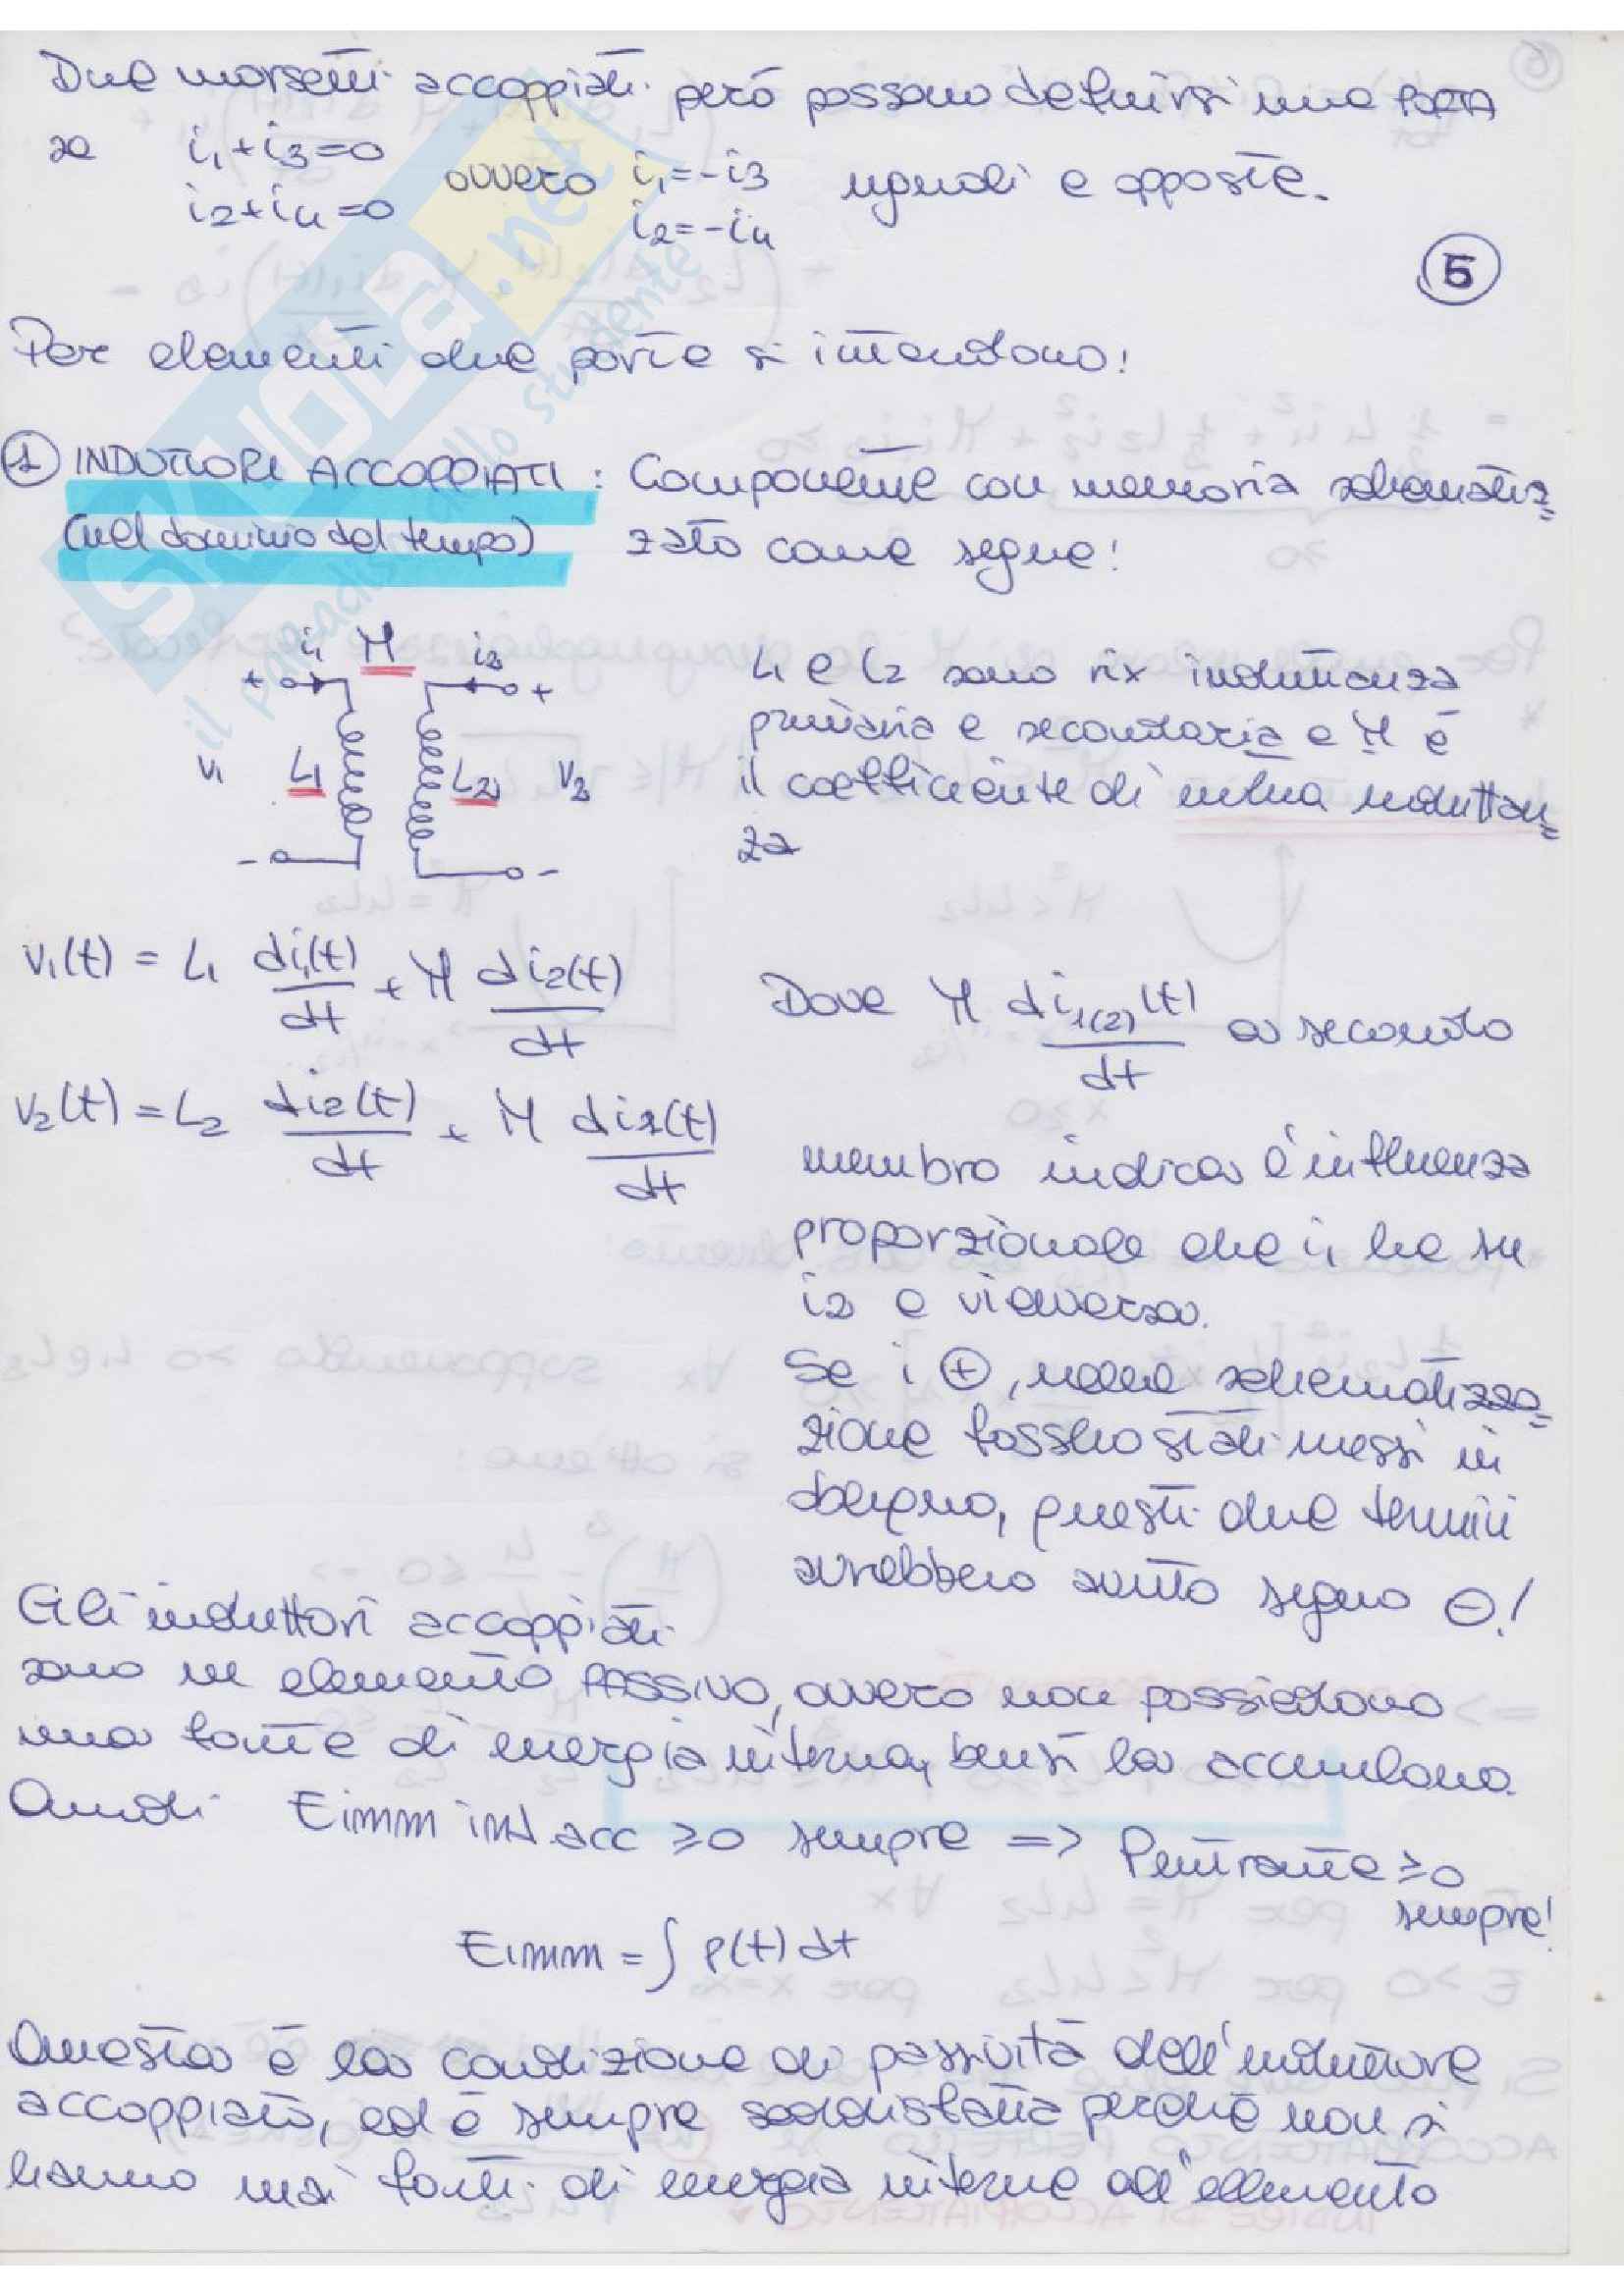 Due morsetti accoppiati però possono definirsi una PORTA
se i1+i3=0 ovvero i1=-i3 uguali e opposte.
i2+i4=0 i2=-i4
5
Per elementi due porte si intendono:
1 INDUTTORI ACCOPPIATI : Componente con memoria schematiz=
(nel dominio del tempo) zato come segue:
i1 M i2
+ +
v1 L1 L2 v2
- -
L1 e L2 sono rix induttanza
primaria e secondaria e M è
il coefficiente di mutua induttan=
za
v1(t) = L1 di1(t)/dt + M di2(t)/dt
v2(t) = L2 di2(t)/dt + M di1(t)/dt
Dove M di1(2)(t)/dt a secondo
membro indica l'influenza
proporzionale che i1 ha su
i2 e viceversa.
Se i ⊕, nella schematizza=
zione fossero stati messi in
disegno, questi due termini
avrebbero avuto segno ⊖!
Gli induttori accoppiati
sono un elemento PASSIVO, ovvero non possiedono
una fonte di energia interna, bensì la accumulano.
Quindi Eimm ind. acc ≥0 sempre => Pentrante ≥0
sempre!
Eimm = ∫ p(t) dt
Questa è la condizione di passività dell'induttore
accoppiato, ed è sempre soddisfatta perchè non si
hanno mai fonti di energia interne all'elemento
SKUOLa.net
il paradiso dello studente